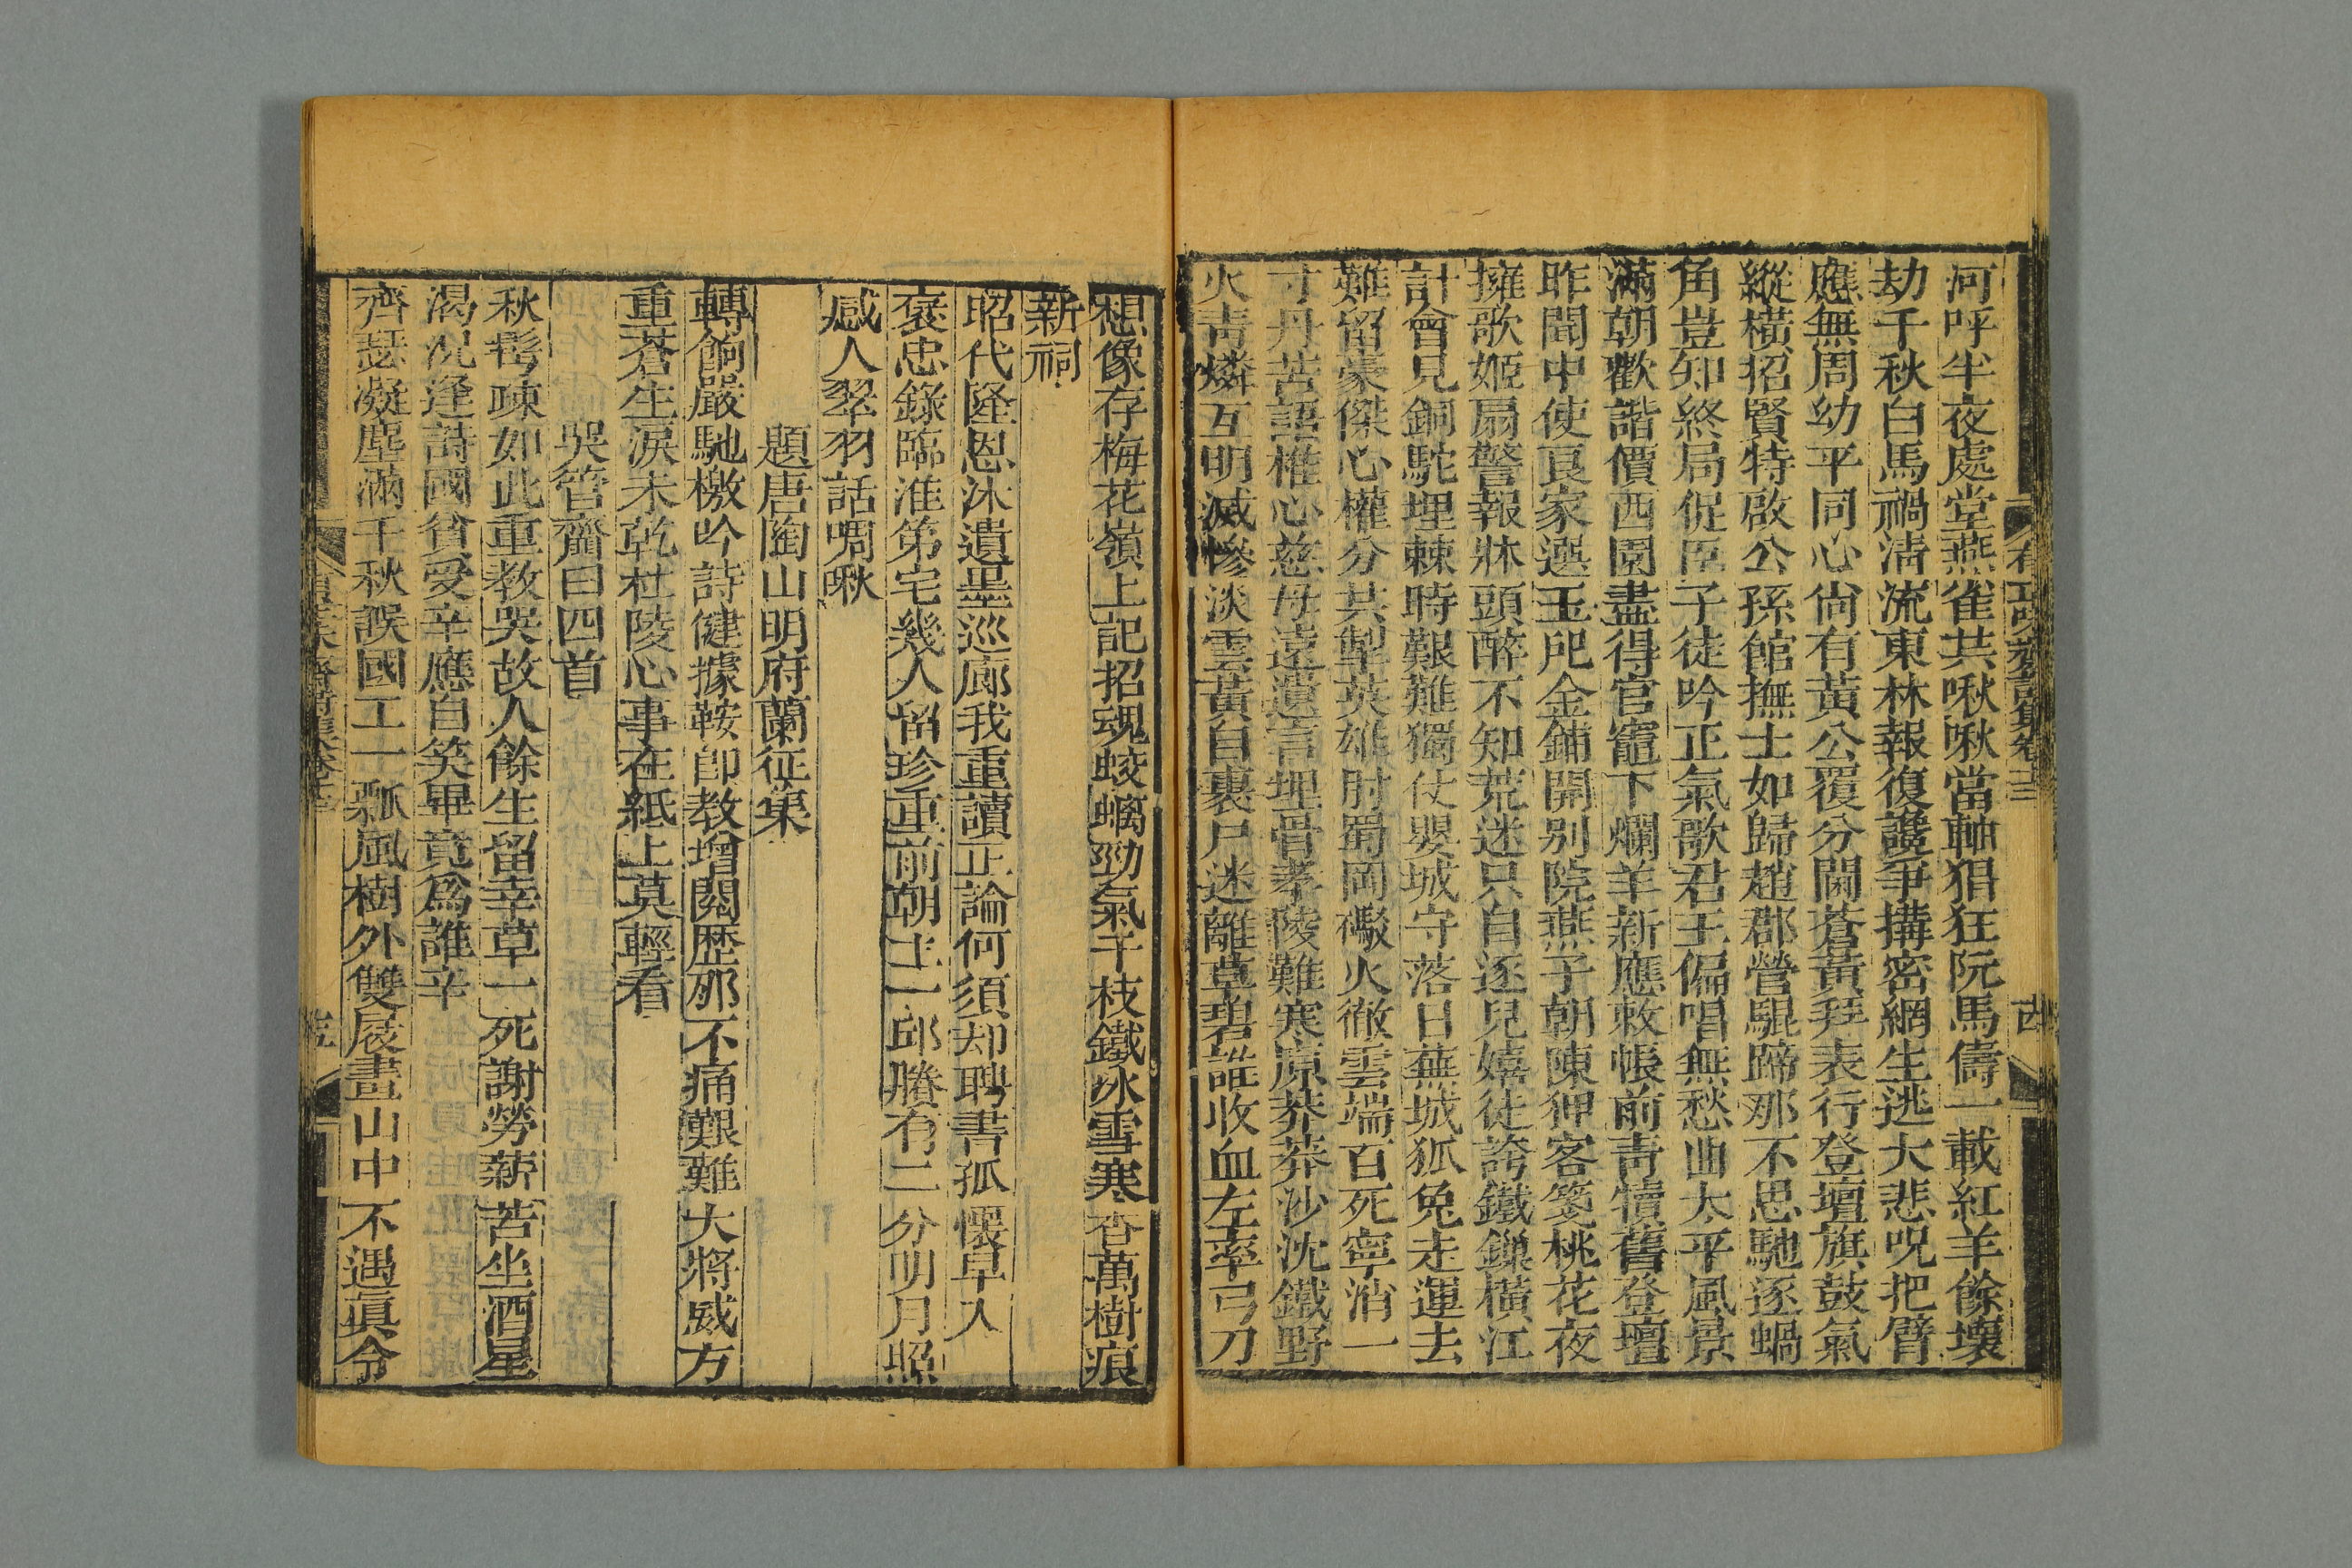 河呼半夜處堂燕雀共啾啾當軸猖狂阮馬儔一載紅羊餘壞
劫千秋白馬禍淸流東林報復讒爭搆密網生逃大悲呪把臂
應無周幼平同心尙有黃公覆分閫蒼黃拜表行登壇旗鼓氣
縱橫招賢特啟公孫館撫士如歸趙郡營騉蹄那不思馳逐蝸
角豈知終局促臣子徒吟正氣歌君王偏唱無愁曲太平風景
滿朝歡諧價西園盡得官竈下爛羊新應敕帳前靑犢舊登壇
昨聞中使良家選玉戺金鋪開別院燕子朝陳狎客箋桃花夜
擁歌姬扇警報牀頭醉不知荒迷只自逐兒嬉徒誇鐵鏁橫江
計會見銅駝埋棘時艱難獨仗嬰城守落日蕪城狐兔走運去
難留豪傑心權分共掣英雄肘蜀岡礮火徹雲端百死寧消一
寸丹苦語椎心慈母遠遺言埋骨孝陵難寒原莽莽沙沈鐵野
火靑燐互明滅慘淡雲黃自裹尸迷離草碧誰收血左率弓刀
想像存梅花嶺上記招魂蛟螭勁氣千枝鐵冰雪寒香萬樹痕
新祠
昭代隆恩沐遺墨巡廊我重讀正論何須却聘書孤懷早入
褒忠錄臨淮第宅幾人留珍重前朝土一邱賸有二分明月照
感人翠羽話啁啾
題唐陶山明府蘭征集
轉餉嚴馳檄吟詩健據鞍卽教增閱歴那不痛艱難大將威方
重蒼生淚未乾杜陵心事在紙上莫輕看
哭管齋曰四首
秋髩疎如此重教哭故人餘生留幸草一死謝勞薪苦坐酒星
渴況逢詩國貧受辛應自笑畢竟爲誰辛
齊瑟凝塵滿千秋誤國工一瓢風樹外雙屐畫山中不遇眞令